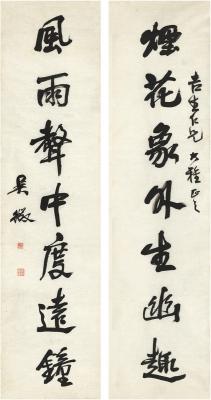 煙花象外生幽趣
吉生仁兄大雅正之
風雨聲中度遠鐘
吳徵